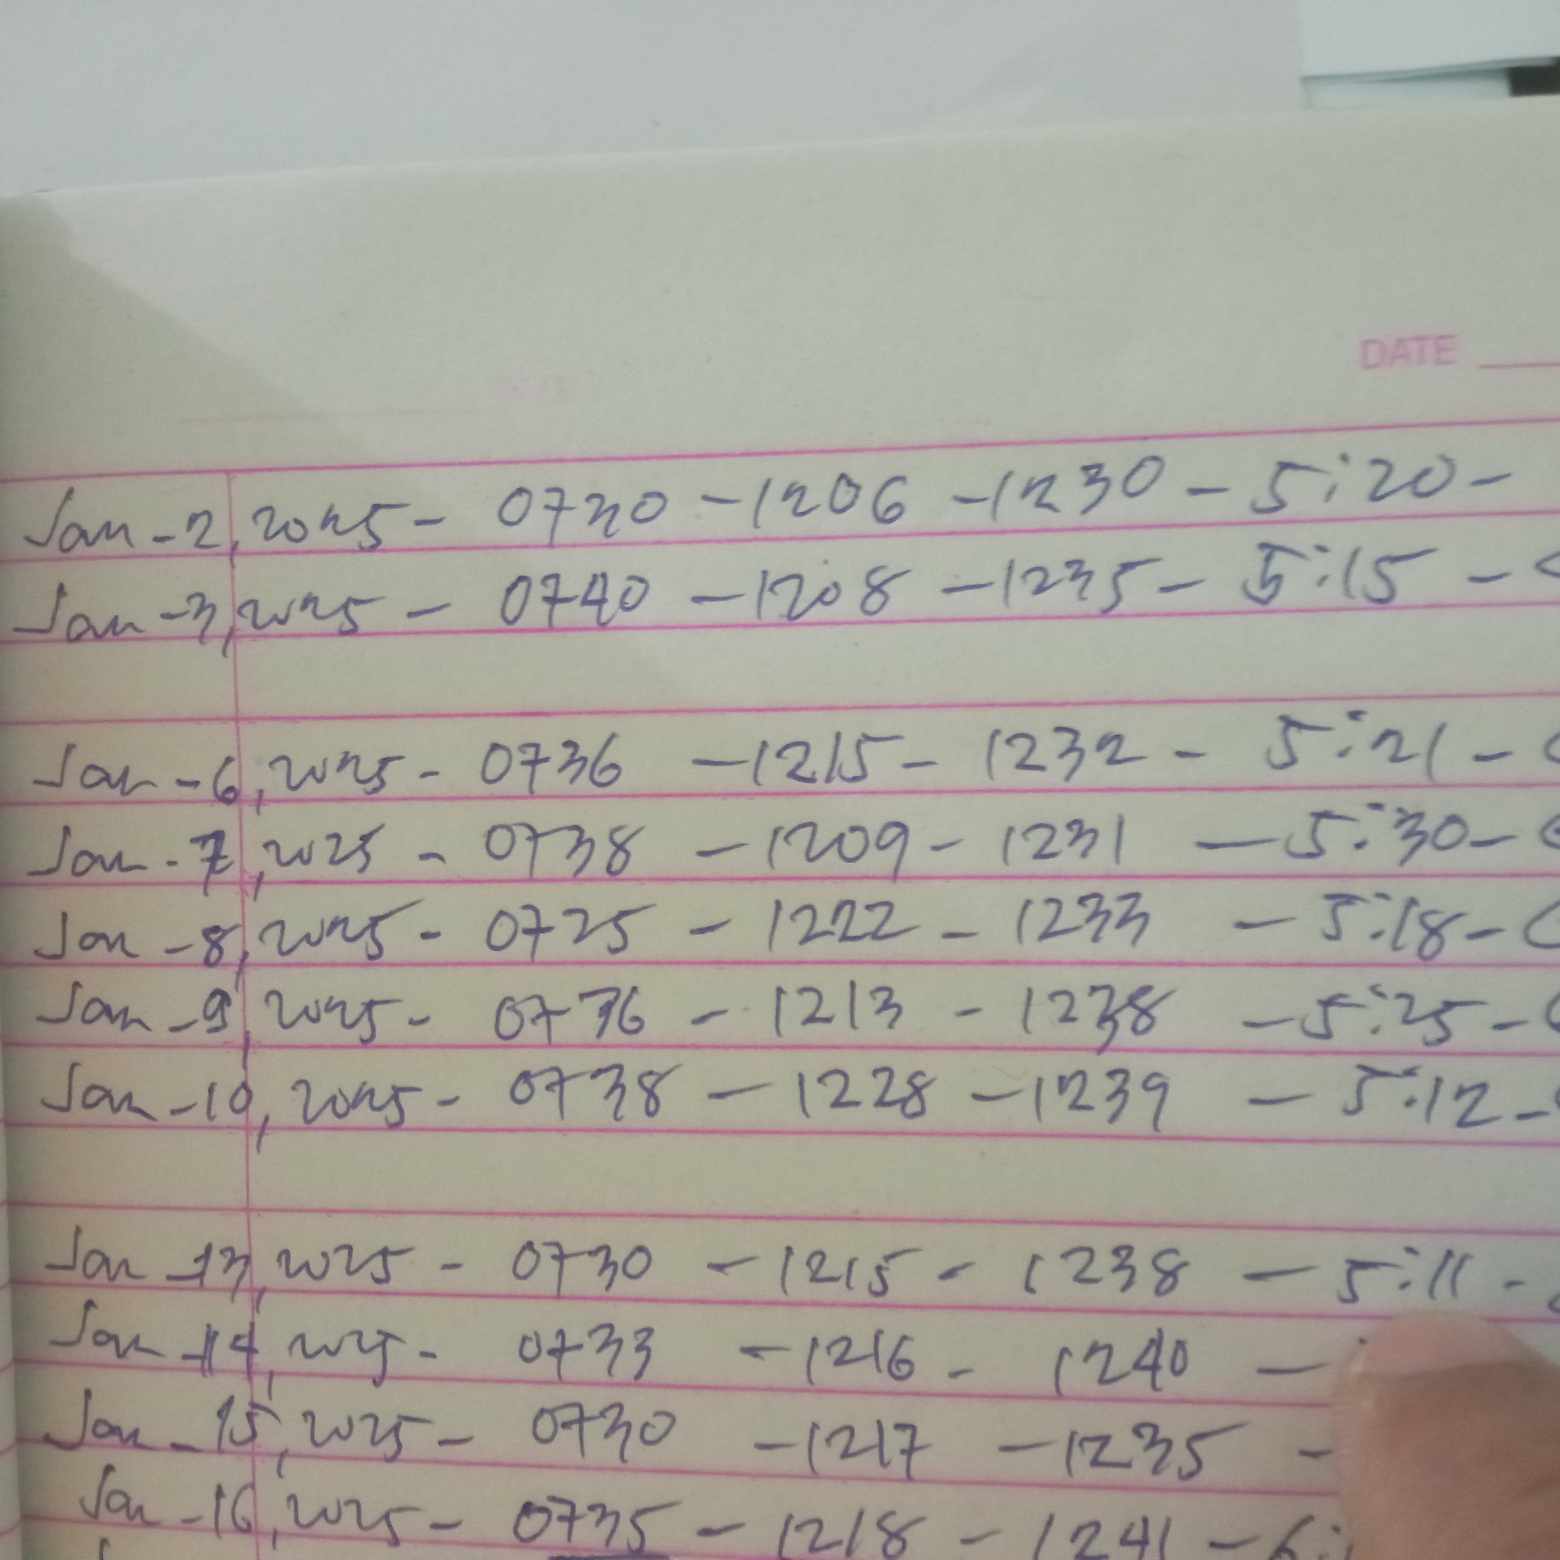 DATE
Jan-2, 2025 - 0730 - 1206 - 1230 - 5:20 -
Jan-3, 2025 - 0740 - 1208 - 1235 - 5:15 -
Jan-6, 2025 - 0736 - 1215 - 1232 - 5:21 -
Jan-7, 2025 - 0738 - 1209 - 1231 - 5:30 -
Jan-8, 2025 - 0725 - 1222 - 1233 - 5:18 -
Jan-9, 2025 - 0736 - 1213 - 1238 - 5:25 -
Jan-10, 2025 - 0738 - 1228 - 1239 - 5:12 -
Jan-13, 2025 - 0730 - 1215 - 1238 - 5:11 -
Jan-14, 2025 - 0733 - 1216 - 1240 -
Jan-15, 2025 - 0730 - 1217 - 1235 -
Jan-16, 2025 - 0735 - 1218 - 1241 -